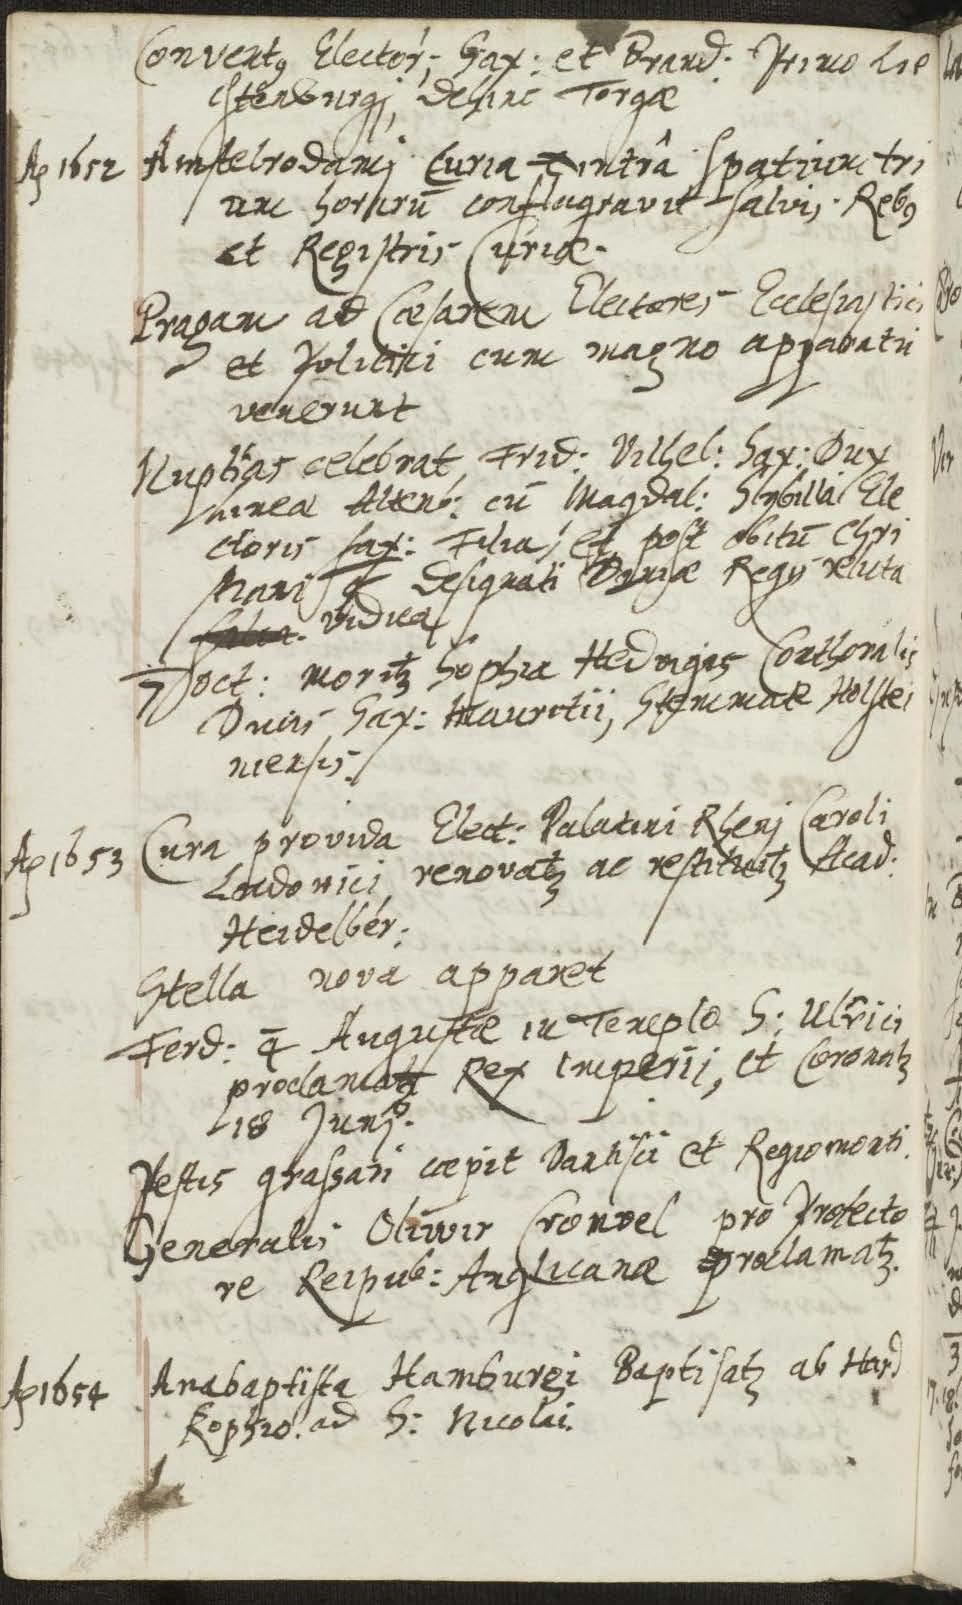 Conventꝯ Elector: Sax: et Brand: Primo Lie
chtenburgj, dehinc Torgæ
Aō 1652 Amstelrodamj Curia intrâ spatium tri
um horarū conflagravit salvis Rebꝯ
et Registris Curiæ.
Pragam ad Cæsarem Electores Ecclesiastici
et Politici cum magno apparatu
venerunt
Nuptias celebrat Frid: Vilhel: Sax: Dux
lineæ Altenb: cū Magdal: Sibilla Ele
ctoris Sax: Filia, et post obitū Chri
stiani designati Daniæ Regis relicta
vidua
7 Oct: moritꝫ Sophia Hedvigis Conthoralis
Ducis Sax: Mauritii, Stemmate Holstei
niensis.
Aō 1653 Cura provida Elect: Palatini Rhenj Caroli
Ludovici renovatꝫ ac restituitꝫ Acad:
Heidelber:
Stella nova apparet
Ferd: 4 Augustæ in Templo S: Ulrici
proclamatꝫ Rex Imperii, et Coronatꝫ
18 Junj.
Pestis grassari cœpit Dantisci et Regiomonti.
Generalis Olivvir Cronvel pro Protecto
re Reipub: Anglicanæ proclamatꝫ.
Aō 1654 Anabaptista Hamburgi Baptisatꝫ ab Hard
kophio. ad S: Nicolai.